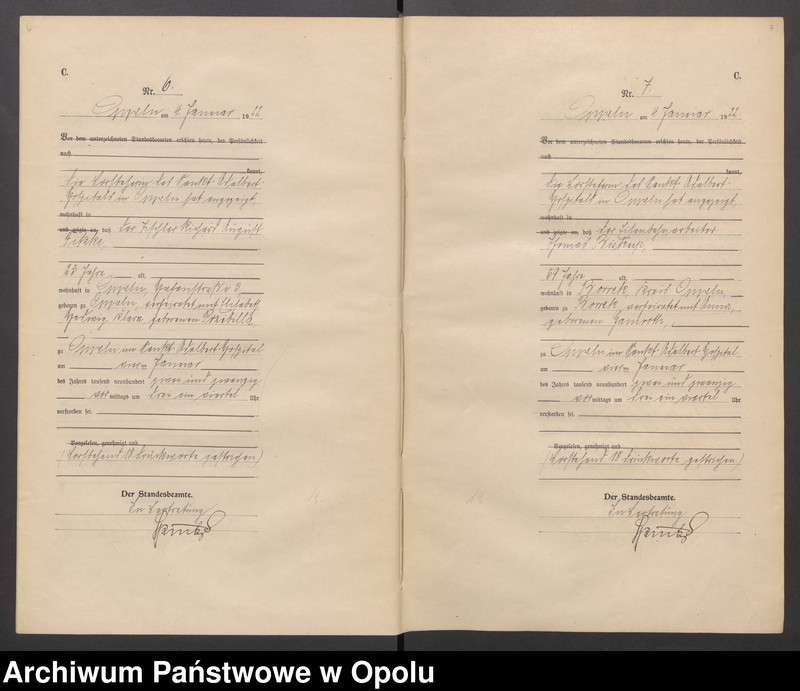 C.
Nr. 6.
Oppeln am 4. Januar 1922.
Vor dem unterzeichneten Standesbeamten erschien heute, der Persönlichkeit
nach
kannt,
die Vorsteherin des Sankt Adalbert-
Hospitals in Oppeln hat angezeigt
wohnhaft in
und zeigte an, daß der Tischler Richard August
23 Jahre alt,
wohnhaft in Oppeln,
geboren zu Oppeln, verheiratet mit Elisabeth
Hedwig Klara geborenen
zu Oppeln im Sankt Adalbert-Hospital
am vier ten Januar
des Jahres tausend neunhundert zwei und zwanzig
vor mittags um drei ein viertel Uhr
verstorben sei.
Vorgelesen, genehmigt und
(Vorstehend 18 Druckworte gestrichen)
Der Standesbeamte.
In Vertretung
C.
Nr. 7.
Oppeln am 4. Januar 1922.
Vor dem unterzeichneten Standesbeamten erschien heute, der Persönlichkeit
nach
kannt,
die Vorsteherin des Sankt Adalbert-
Hospitals in Oppeln hat angezeigt
wohnhaft in
und zeigte an, daß der Eisenbahnarbeiter
Thomas
Jahre alt,
wohnhaft in Kreis Oppeln,
geboren zu verheiratet mit Anna,
geborenen
zu Oppeln im Sankt Adalbert-Hospital
am vier ten Januar
des Jahres tausend neunhundert zwei und zwanzig
vor mittags um drei ein viertel Uhr
verstorben sei.
Vorgelesen, genehmigt und
(Vorstehend 18 Druckworte gestrichen)
Der Standesbeamte.
In Vertretung
Archiwum Państwowe w Opolu